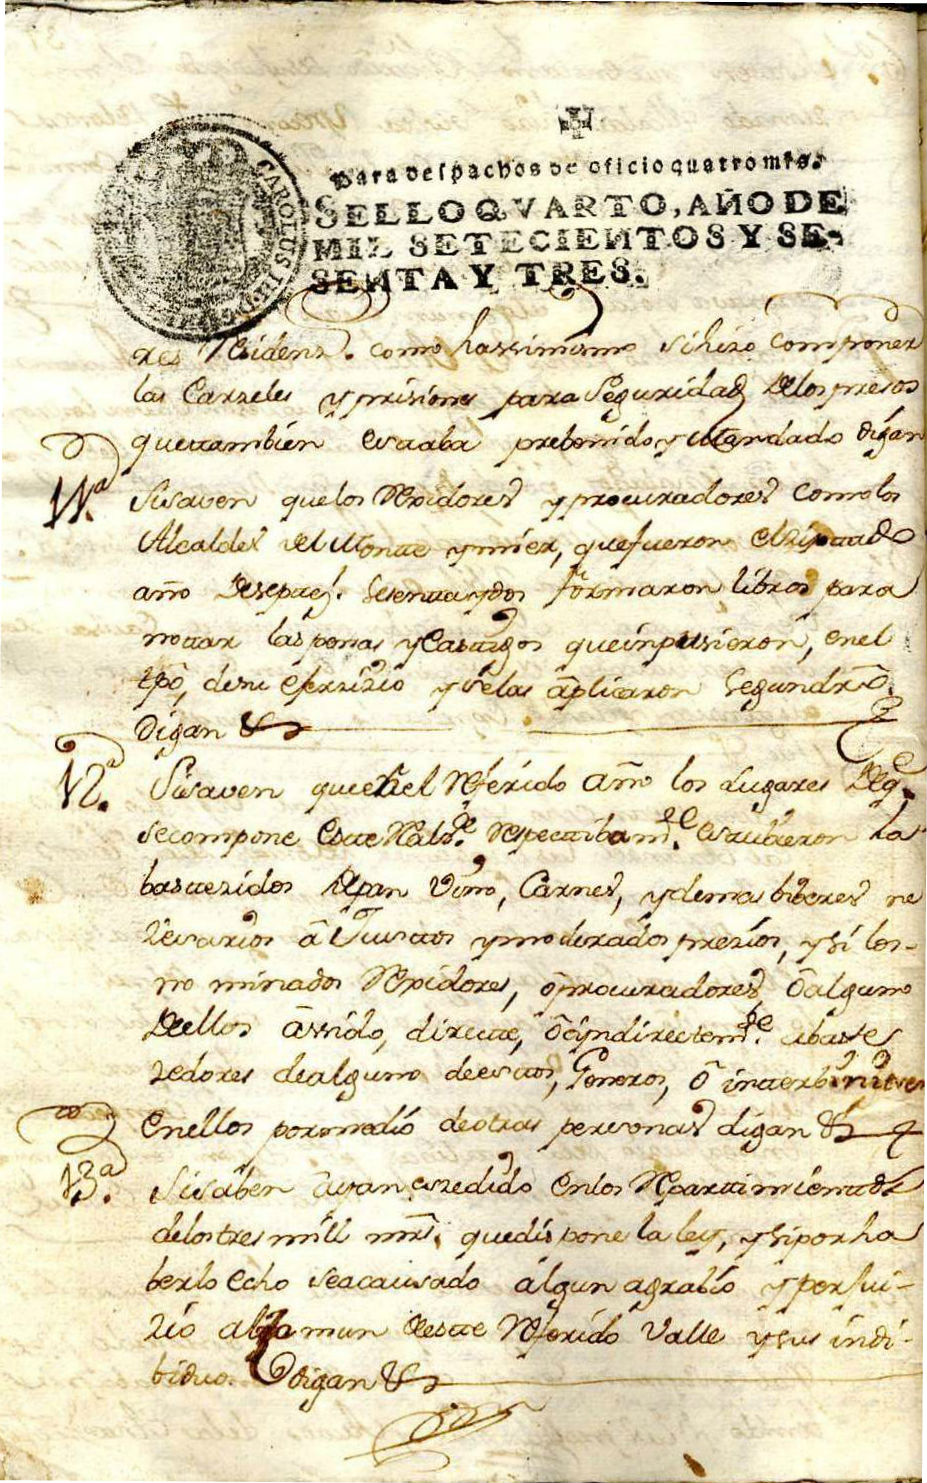 Para despachos de oficio quatro mrs.
SELLO QVARTO, AÑO DE
MIL SETECIENTOS Y SE-
SENTA Y TRES.
CAROLUS III
res Residens. como hassimismo si hizo componer
las Carzeles y prisiones para Seguridad delos presos
que tambien estaba prebenido y Mandado digan
11ª
Sisaven quelos Rexidores y procuradores como los
Alcaldes del Monte y mier, que fueron el zitado
año de setez. Sesenta y dos formaron libros para
nottar las penas y Castigos que inpusieron, en el
tpô, de su exerzizio y se las âplicaron Segun drô.
digan &
12ª
Sisaven que en el Referido año los Lugares de q.
se compone este Valle. Respectibamte. estubieron ha
bastezidos de pan Vino, Carnes, y demas biberes ne
zesarios â Justos y moderados prezios, y si los
no minados Rexidores, ô procuradores, ô alguno
de ellos â sido, directe, ô yndirectemte. abaste
zedores de alguno de estos, Generos, ô interbinieron
en ellos por medio de otras personas digan &
13ª
Si saben ayan exzedido en los Repartimientos
de los tres mill mrs. que dispone la ley, y si por ha
berlo echo se a causado algun agrabio y perjui-
zio al Comun de este Referido Valle y sus indi-
biduos. digan &